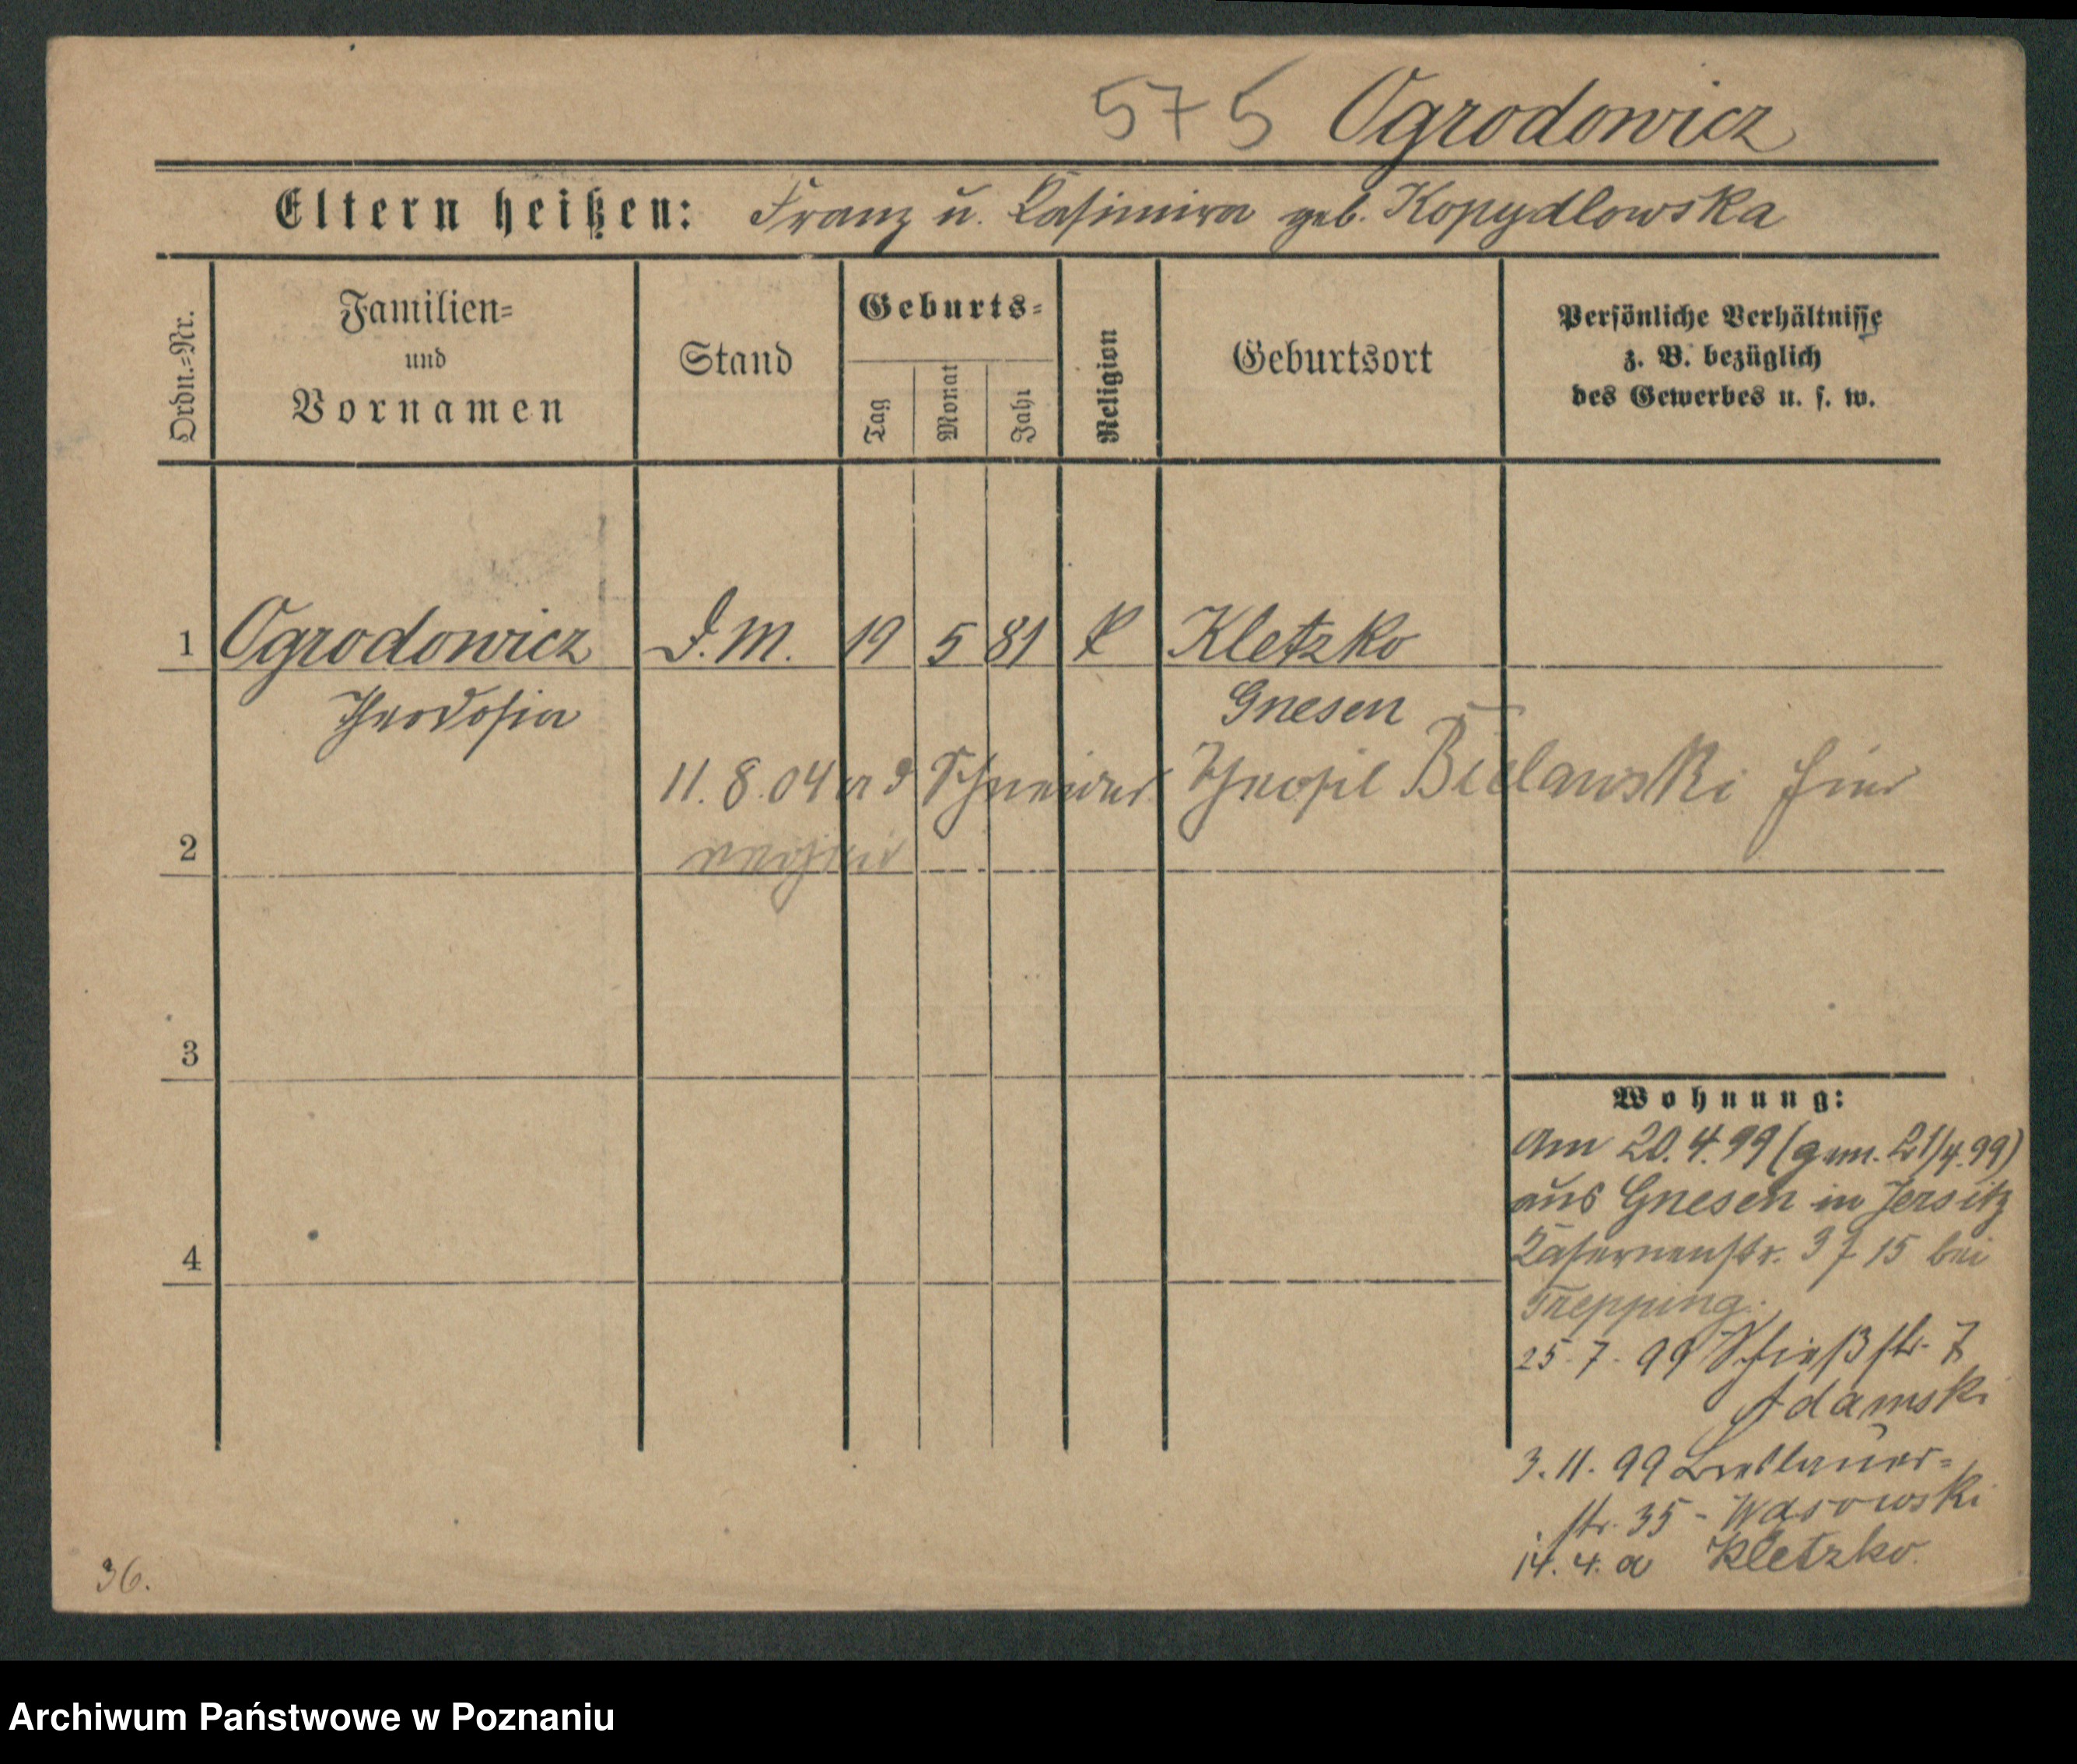 575 Ogrodowicz
Eltern heißen: Franz u. Kasimira geb. Kopydlowska
Ordn.-Nr.
Familien-
und
Vornamen
Stand
Geburts-
Tag
Monat
Jahr
Religion
Geburtsort
Persönliche Verhältnisse
z. B. bezüglich
des Gewerbes u. s. w.
1 Ogrodowicz D.M. 19 5 81 k Kletzko
Theodosia Gnesen
11.8.04 a d Schneider Theofil Bielawski hier
2
3
4
Wohnung:
Am 20.4.99 (gem. 21/4.99)
aus Gnesen in Jersitz
Kasernenstr. 37 15 bei
Trepping.
25.7.99 Schießstr. 7
Adamski
3.11.99 Breslauer-
str. 35 - Wąsowski
14.4. a Kletzko.
36.
Archiwum Państwowe w Poznaniu